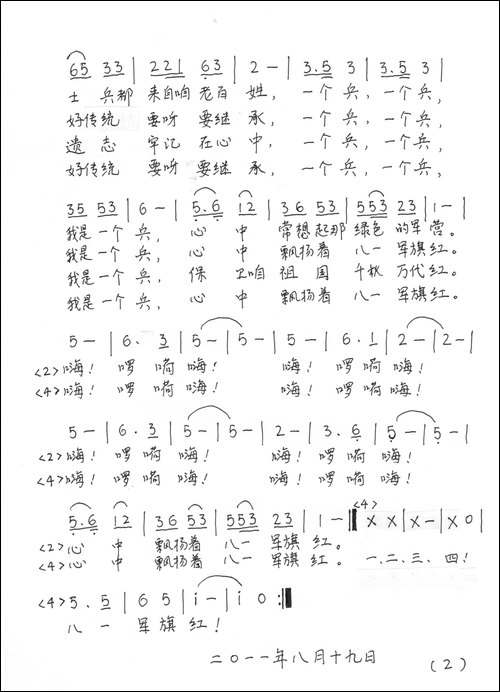 65 33 | 221 63 | 2 — | 3.5 3 | 3.5 3 |
士 兵都 来自咱 老百 姓, 一个 兵, 一个 兵,
好传统 要听 要继 承, 一个 兵, 一个 兵,
遗 志 牢记 在心 中, 一个 兵, 一个 兵,
好传统 要听 要继 承, 一个 兵, 一个 兵,
35 53 | 6 — | 5.6 12 | 36 53 | 553 23 | 1 — |
我是一个 兵, 心 中 常想起那 绿色 的军 营。
我是一个 兵, 心 中 飘扬着 八一 军旗 红。
我是一个 兵, 保 卫咱 祖 国 千秋 万代 红。
我是一个 兵, 心 中 飘扬着 八一 军旗 红。
5 — | 6. 3 | 5 — | 5 — | 5 — | 6. 1 | 2 — | 2 — |
<2>嗨! 啰 嗬 嗨! 嗨! 啰 嗬 嗨!
<4>嗨! 啰 嗬 嗨! 嗨! 啰 嗬 嗨!
5 — | 6. 3 | 5 — | 5 — | 2 — | 3. 6 | 5 — | 5 — |
<2>嗨! 啰 嗬 嗨! 嗨! 啰 嗬 嗨!
<4>嗨! 啰 嗬 嗨! 嗨! 啰 嗬 嗨!
5.6 12 | 36 53 | 553 23 | 1 — ‖ <4> X X | X — | X 0 |
<2>心 中 飘扬着 八一 军旗 红。
<4>心 中 飘扬着 八一 军旗 红。 一、二、三、四!
<4> 5. 5 | 6 5 | i — | i 0 :‖
八 一 军 旗 红!
二〇一一年八月十九日 (2)